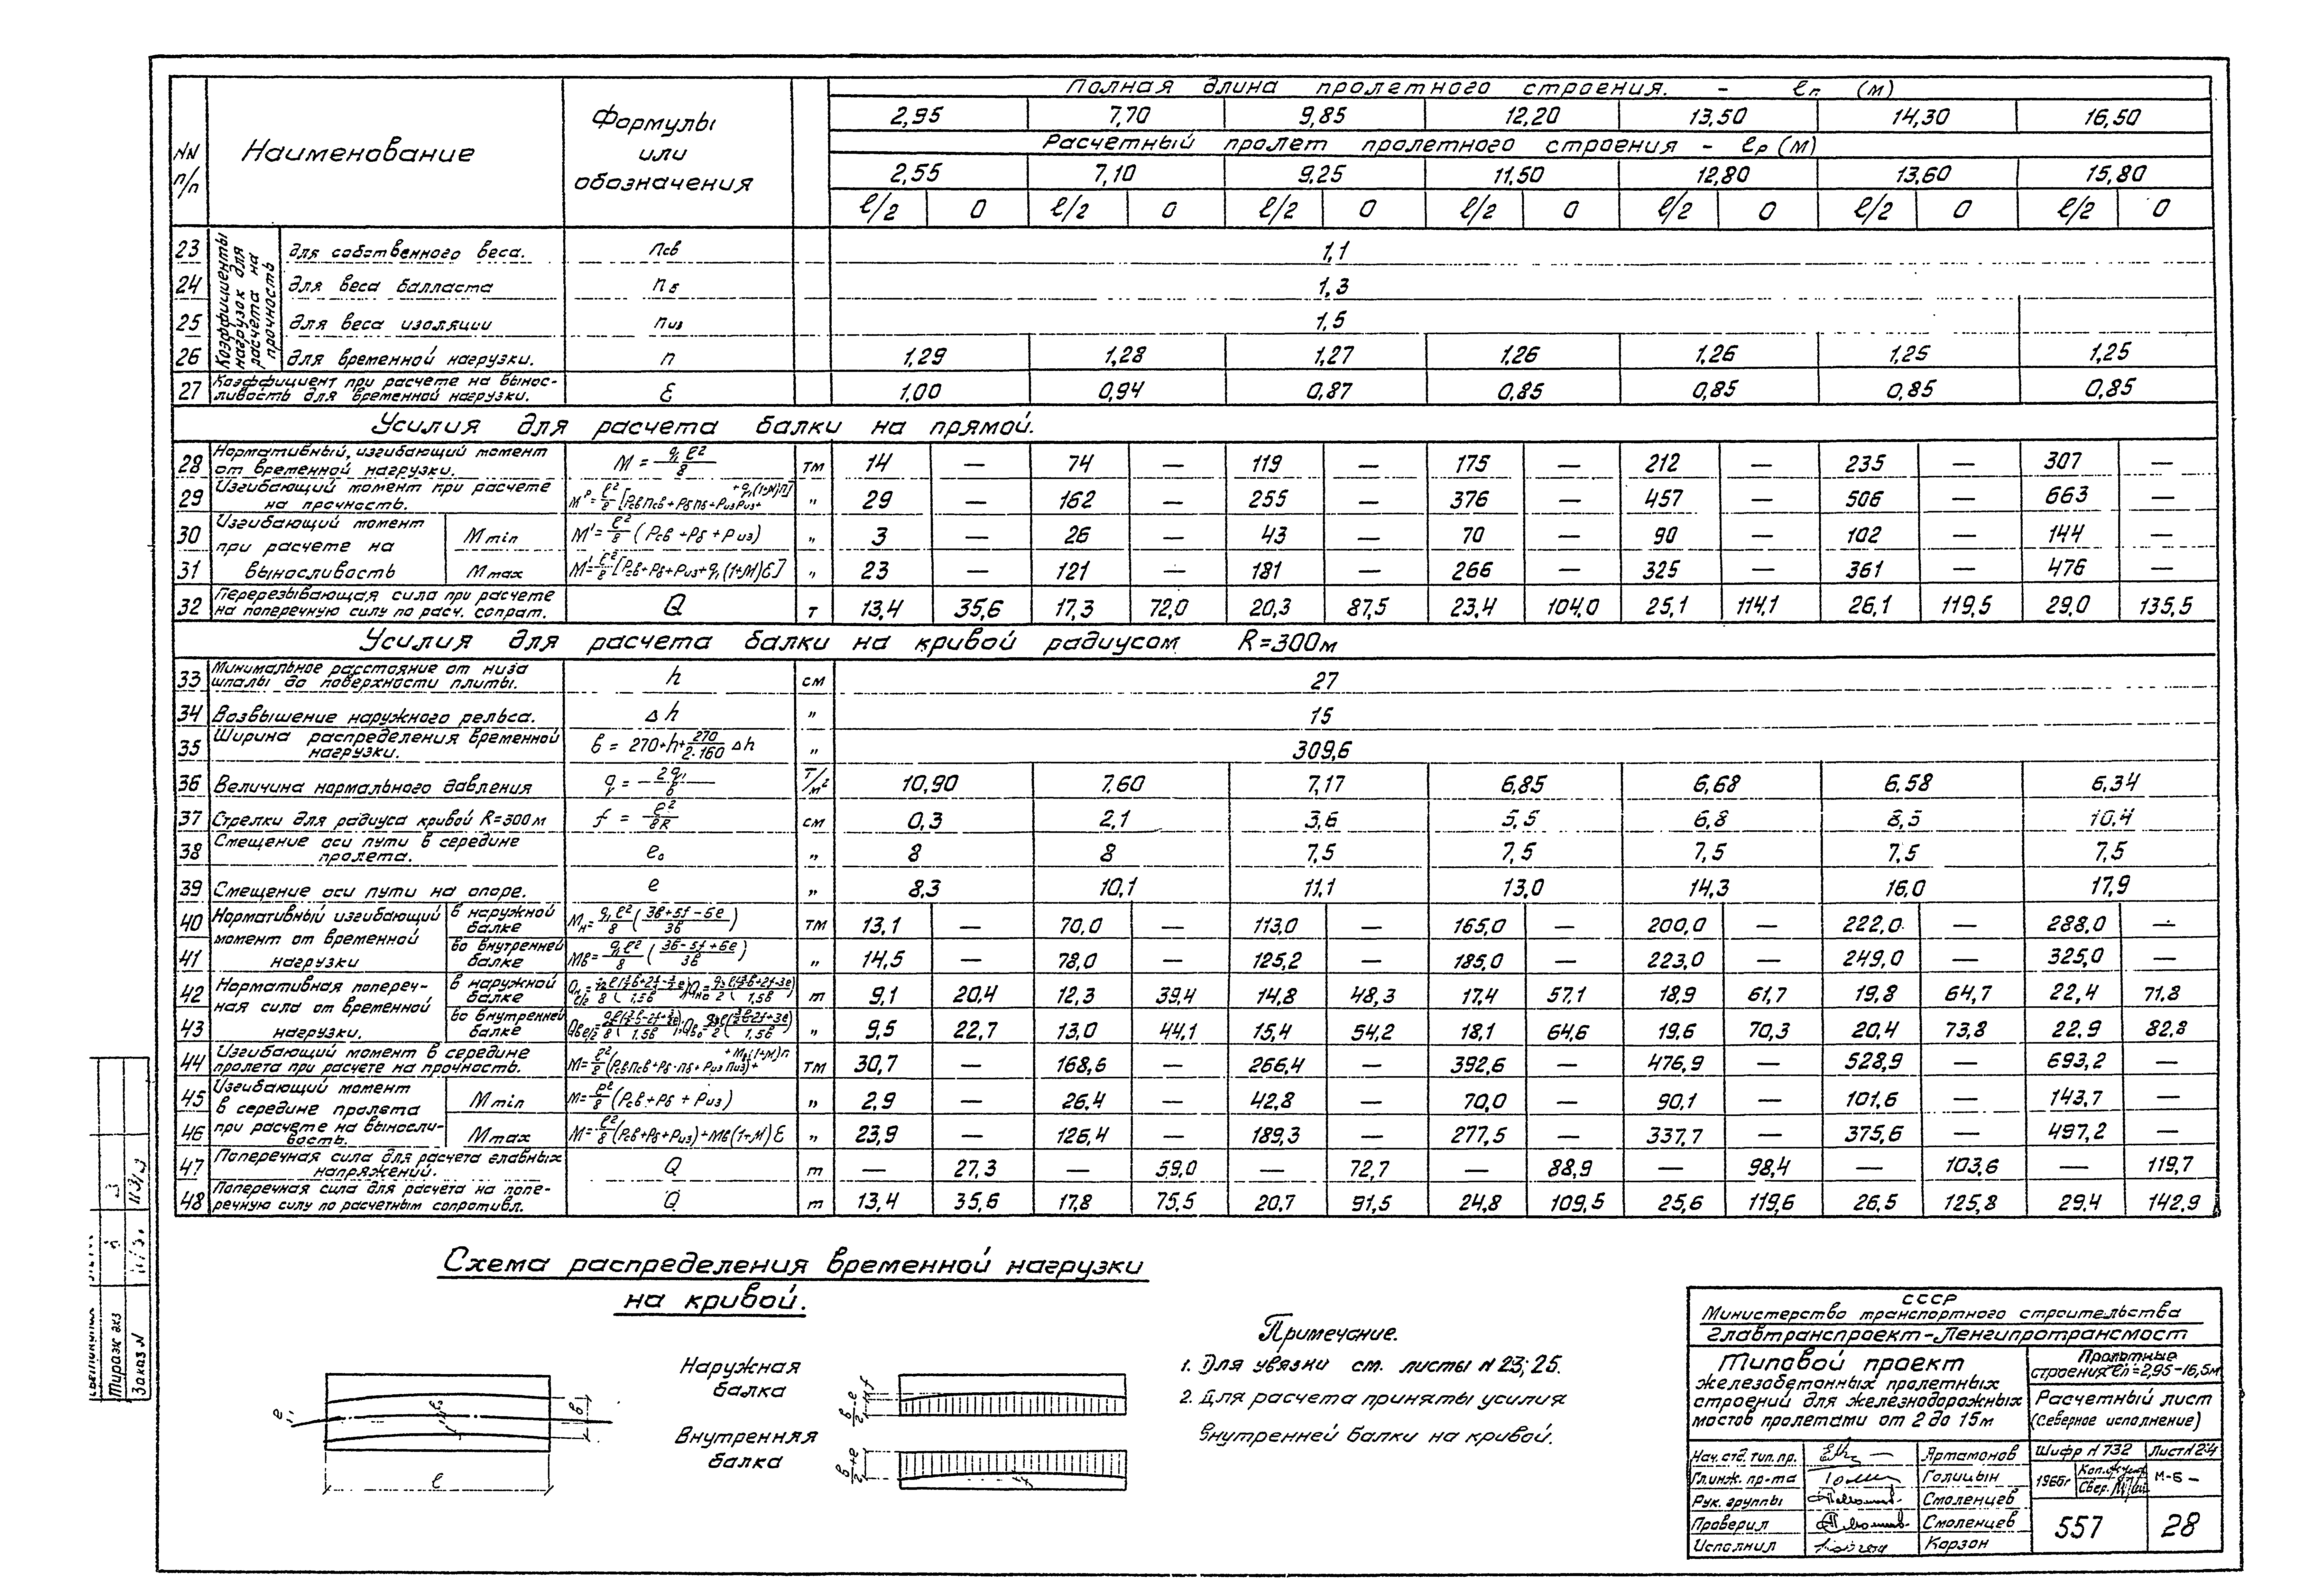 NN п/п | Наименование | Формулы или обозначения | Полная длина пролетного строения. - ℓп (м)
2,95 | 7,70 | 9,85 | 12,20 | 13,50 | 14,30 | 16,50
Расчетный пролет пролетного строения - ℓр (м)
2,55 | 7,10 | 9,25 | 11,50 | 12,80 | 13,60 | 15,80
ℓ/2 | 0 | ℓ/2 | 0 | ℓ/2 | 0 | ℓ/2 | 0 | ℓ/2 | 0 | ℓ/2 | 0 | ℓ/2 | 0
Коэффициенты нагрузок для расчета на прочность
23 | для собственного веса. | nсв | 1,1
24 | для веса балласта | nб | 1,3
25 | для веса изоляции | nиз | 1,5
26 | для временной нагрузки. | n | 1,29 | 1,28 | 1,27 | 1,26 | 1,26 | 1,25 | 1,25
27 | Коэффициент при расчете на вынос-ливость для временной нагрузки. | Ɛ | 1,00 | 0,94 | 0,87 | 0,85 | 0,85 | 0,85 | 0,85
Усилия для расчета балки на прямой.
28 | Нормативный, изгибающий момент от временной нагрузки. | M = q₁ℓ²/8 | тм | 14 | — | 74 | — | 119 | — | 175 | — | 212 | — | 235 | — | 307 | —
29 | Изгибающий момент при расчете на прочность. | „ | 29 | — | 162 | — | 255 | — | 376 | — | 457 | — | 506 | — | 663 | —
30 | Изгибающий момент при расчете на выносливость | Mmin | M' = ℓ²/8 (Pсв + Pб + Pиз) | „ | 3 | — | 26 | — | 43 | — | 70 | — | 90 | — | 102 | — | 144 | —
31 | Mmax | M' = ℓ²/8 [Pсв + Pб + Pиз + q₁(1+M)Ɛ] | „ | 23 | — | 121 | — | 181 | — | 266 | — | 325 | — | 361 | — | 476 | —
32 | Перерезывающая сила при расчете на поперечную силу по расч. сопрот. | Q | т | 13,4 | 35,6 | 17,3 | 72,0 | 20,3 | 87,5 | 23,4 | 104,0 | 25,1 | 114,1 | 26,1 | 119,5 | 29,0 | 135,5
Усилия для расчета балки на кривой радиусом R=300м
33 | Минимальное расстояние от низа шпалы до поверхности плиты. | h | см | 27
34 | Возвышение наружного рельса. | Δh | „ | 15
35 | Ширина распределения временной нагрузки. | в = 270+h+270/2·160 Δh | „ | 309,6
36 | Величина нормального давления | q = 2q₁/в | т/м² | 10,90 | 7,60 | 7,17 | 6,85 | 6,68 | 6,58 | 6,34
37 | Стрелки для радиуса кривой R=300м | f = ℓ²/8R | см | 0,3 | 2,1 | 3,6 | 5,5 | 6,8 | 8,5 | 10,4
38 | Смещение оси пути в середине пролета. | e₀ | „ | 8 | 8 | 7,5 | 7,5 | 7,5 | 7,5 | 7,5
39 | Смещение оси пути на опоре. | e | „ | 8,3 | 10,1 | 11,1 | 13,0 | 14,3 | 16,0 | 17,9
40 | Нормативный изгибающий момент от временной нагрузки | в наружной балке | Mн = q₁ℓ²/8 (3в+5f-6e/3в) | тм | 13,1 | — | 70,0 | — | 113,0 | — | 165,0 | — | 200,0 | — | 222,0 | — | 288,0 | —
41 | во внутренней балке | Mв = q₁ℓ²/8 (3в-5f+6e/3в) | „ | 14,5 | — | 78,0 | — | 125,2 | — | 185,0 | — | 223,0 | — | 249,0 | — | 325,0 | —
42 | Нормативная попереч-ная сила от временной нагрузки. | в наружной балке | т | 9,1 | 20,4 | 12,3 | 39,4 | 14,8 | 48,3 | 17,4 | 57,1 | 18,9 | 61,7 | 19,8 | 64,7 | 22,4 | 71,8
43 | во внутренней балке | „ | 9,5 | 22,7 | 13,0 | 44,1 | 15,4 | 54,2 | 18,1 | 64,6 | 19,6 | 70,3 | 20,4 | 73,8 | 22,9 | 82,8
44 | Изгибающий момент в середине пролета при расчете на прочность. | M = ℓ²/8 (Pсв nсв + Pб·nб + Pиз nиз) + Mв(1+M)n | тм | 30,7 | — | 168,6 | — | 266,4 | — | 392,6 | — | 476,9 | — | 528,9 | — | 693,2 | —
45 | Изгибающий момент в середине пролета при расчете на выносли-вость. | Mmin | M = ℓ²/8 (Pсв + Pб + Pиз) | „ | 2,9 | — | 26,4 | — | 42,8 | — | 70,0 | — | 90,1 | — | 101,6 | — | 143,7 | —
46 | Mmax | M = ℓ²/8 (Pсв+Pб+Pиз)+Mв(1+M)Ɛ | „ | 23,9 | — | 126,4 | — | 189,3 | — | 277,5 | — | 337,7 | — | 375,6 | — | 497,2 | —
47 | Поперечная сила для расчета главных напряжений. | Q | т | — | 27,3 | — | 59,0 | — | 72,7 | — | 88,9 | — | 98,4 | — | 103,6 | — | 119,7
48 | Поперечная сила для расчета на попе-речную силу по расчетным сопротивл. | Q | т | 13,4 | 35,6 | 17,8 | 75,5 | 20,7 | 91,5 | 24,8 | 109,5 | 25,6 | 119,6 | 26,5 | 125,8 | 29,4 | 142,9
Схема распределения временной нагрузки
на кривой.
Наружная
балка
Внутренняя
балка
e
в
ℓ
Примечание.
1. Для увязки см. листы N 23; 25.
2. Для расчета приняты усилия
внутренней балки на кривой.
СССР
Министерство транспортного строительства
Главтранспроект-Ленгипротрансмост
Типовой проект
железобетонных пролетных
строений для железнодорожных
мостов пролетами от 2 до 15м
Пролетные
строения ℓп=2,95-16,5м
Расчетный лист
(Северное исполнение)
Нач. отд. тип. пр. | Артамонов | Шифр N 732 | Лист N 24
Гл. инж. пр-та | Голицын | 1966г | М-Б-
Рук. группы | Смоленцев
Проверил | Смоленцев | 557 | 28
Исполнил | Корзон
Тираж экз
Заказ N